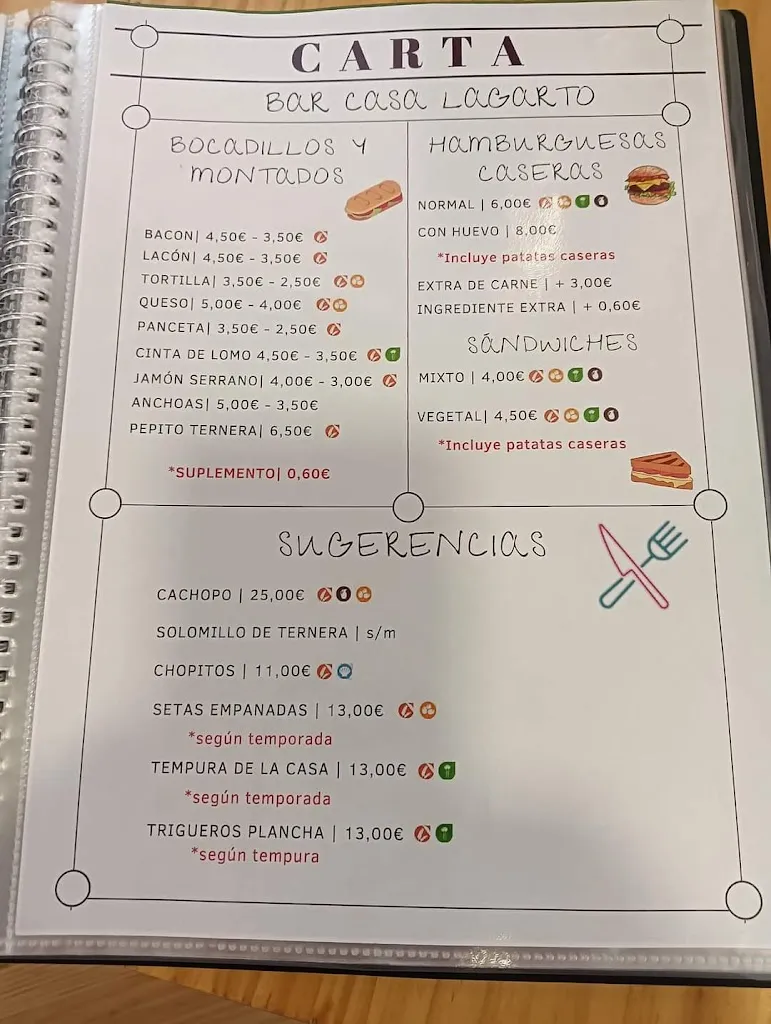 CARTA
BAR CASA LAGARTO
BOCADILLOS Y
MONTADOS
BACON| 4,50€ - 3,50€
LACÓN| 4,50€ - 3,50€
TORTILLA| 3,50€ - 2,50€
QUESO| 5,00€ - 4,00€
PANCETA| 3,50€ - 2,50€
CINTA DE LOMO 4,50€ - 3,50€
JAMÓN SERRANO| 4,00€ - 3,00€
ANCHOAS| 5,00€ - 3,50€
PEPITO TERNERA| 6,50€
*SUPLEMENTO| 0,60€
HAMBURGUESAS
CASERAS
NORMAL | 6,00€
CON HUEVO | 8,00€
*Incluye patatas caseras
EXTRA DE CARNE | + 3,00€
INGREDIENTE EXTRA | + 0,60€
SÁNDWICHES
MIXTO | 4,00€
VEGETAL| 4,50€
*Incluye patatas caseras
SUGERENCIAS
CACHOPO | 25,00€
SOLOMILLO DE TERNERA | s/m
CHOPITOS | 11,00€
SETAS EMPANADAS | 13,00€
*según temporada
TEMPURA DE LA CASA | 13,00€
*según temporada
TRIGUEROS PLANCHA | 13,00€
*según tempura